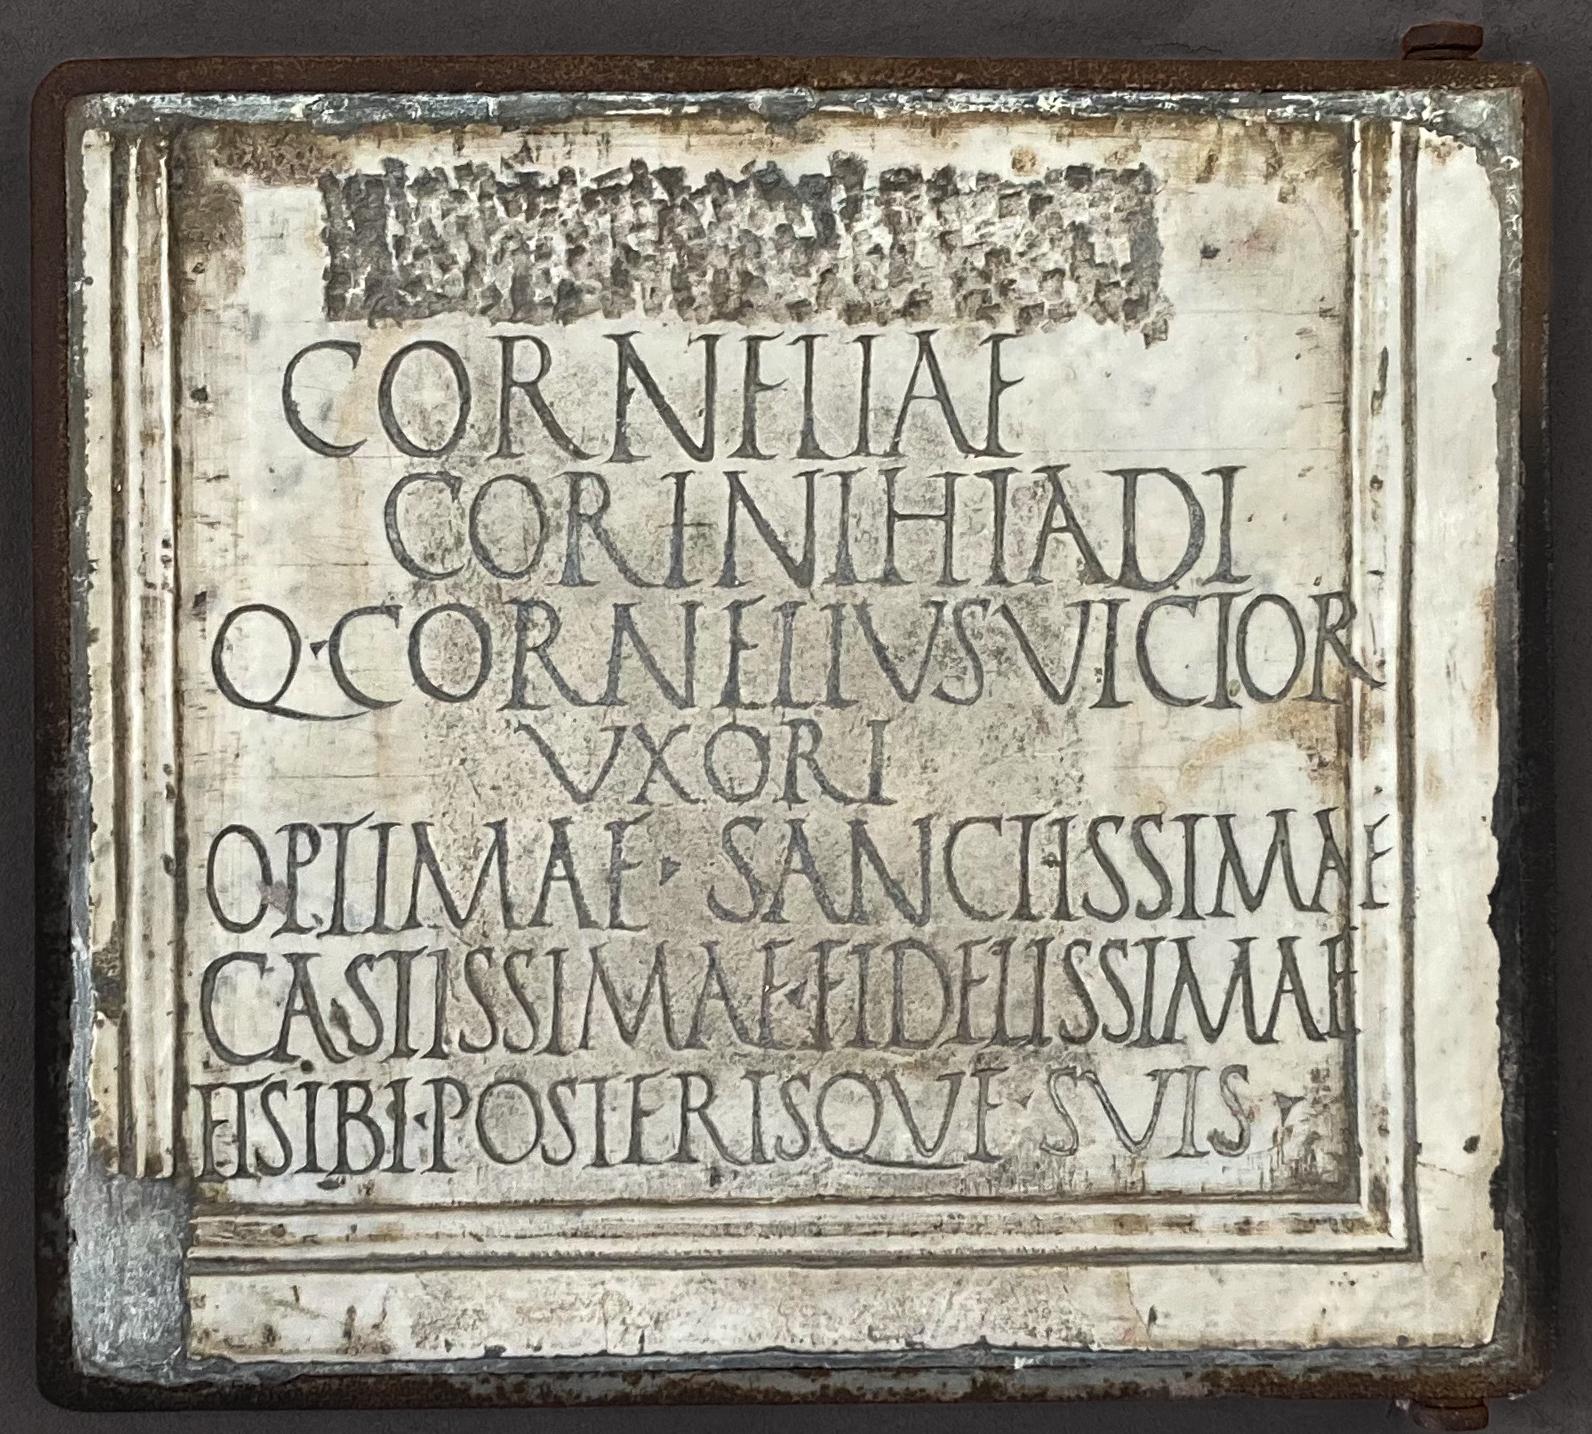 CORNELIAE
CORINTHIADI
Q·CORNELIVS VICTOR
VXORI
OPTIMAE · SANCTISSIMAE
CASTISSIMAE·FIDELISSIMAE
ET SIBI·POSTERISQVE·SVIS·